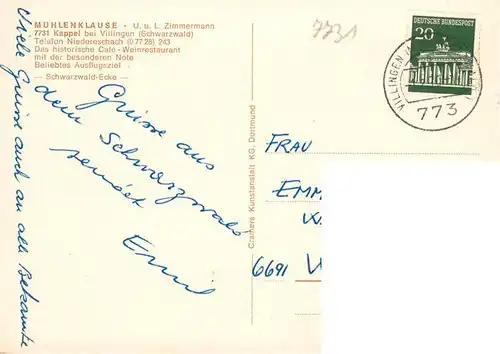 MÜHLENKLAUSE - U. u. L. Zimmermann
7731 Kappel bei Villingen (Schwarzwald)
Telefon Niedereschach (0 77 28) 243
Das historische Café-Weinrestaurant
mit der besonderen Note
Beliebtes Ausflugsziel
— Schwarzwald-Ecke —
7731
DEUTSCHE BUNDESPOST
20
VILLINGEN
773
Grüsse aus
dem Schwarzwald
sendet
Emil
Viele Grüsse auch an alle Bekannte
Cramers Kunstanstalt KG, Dortmund
FRAU
EMM
6691 W